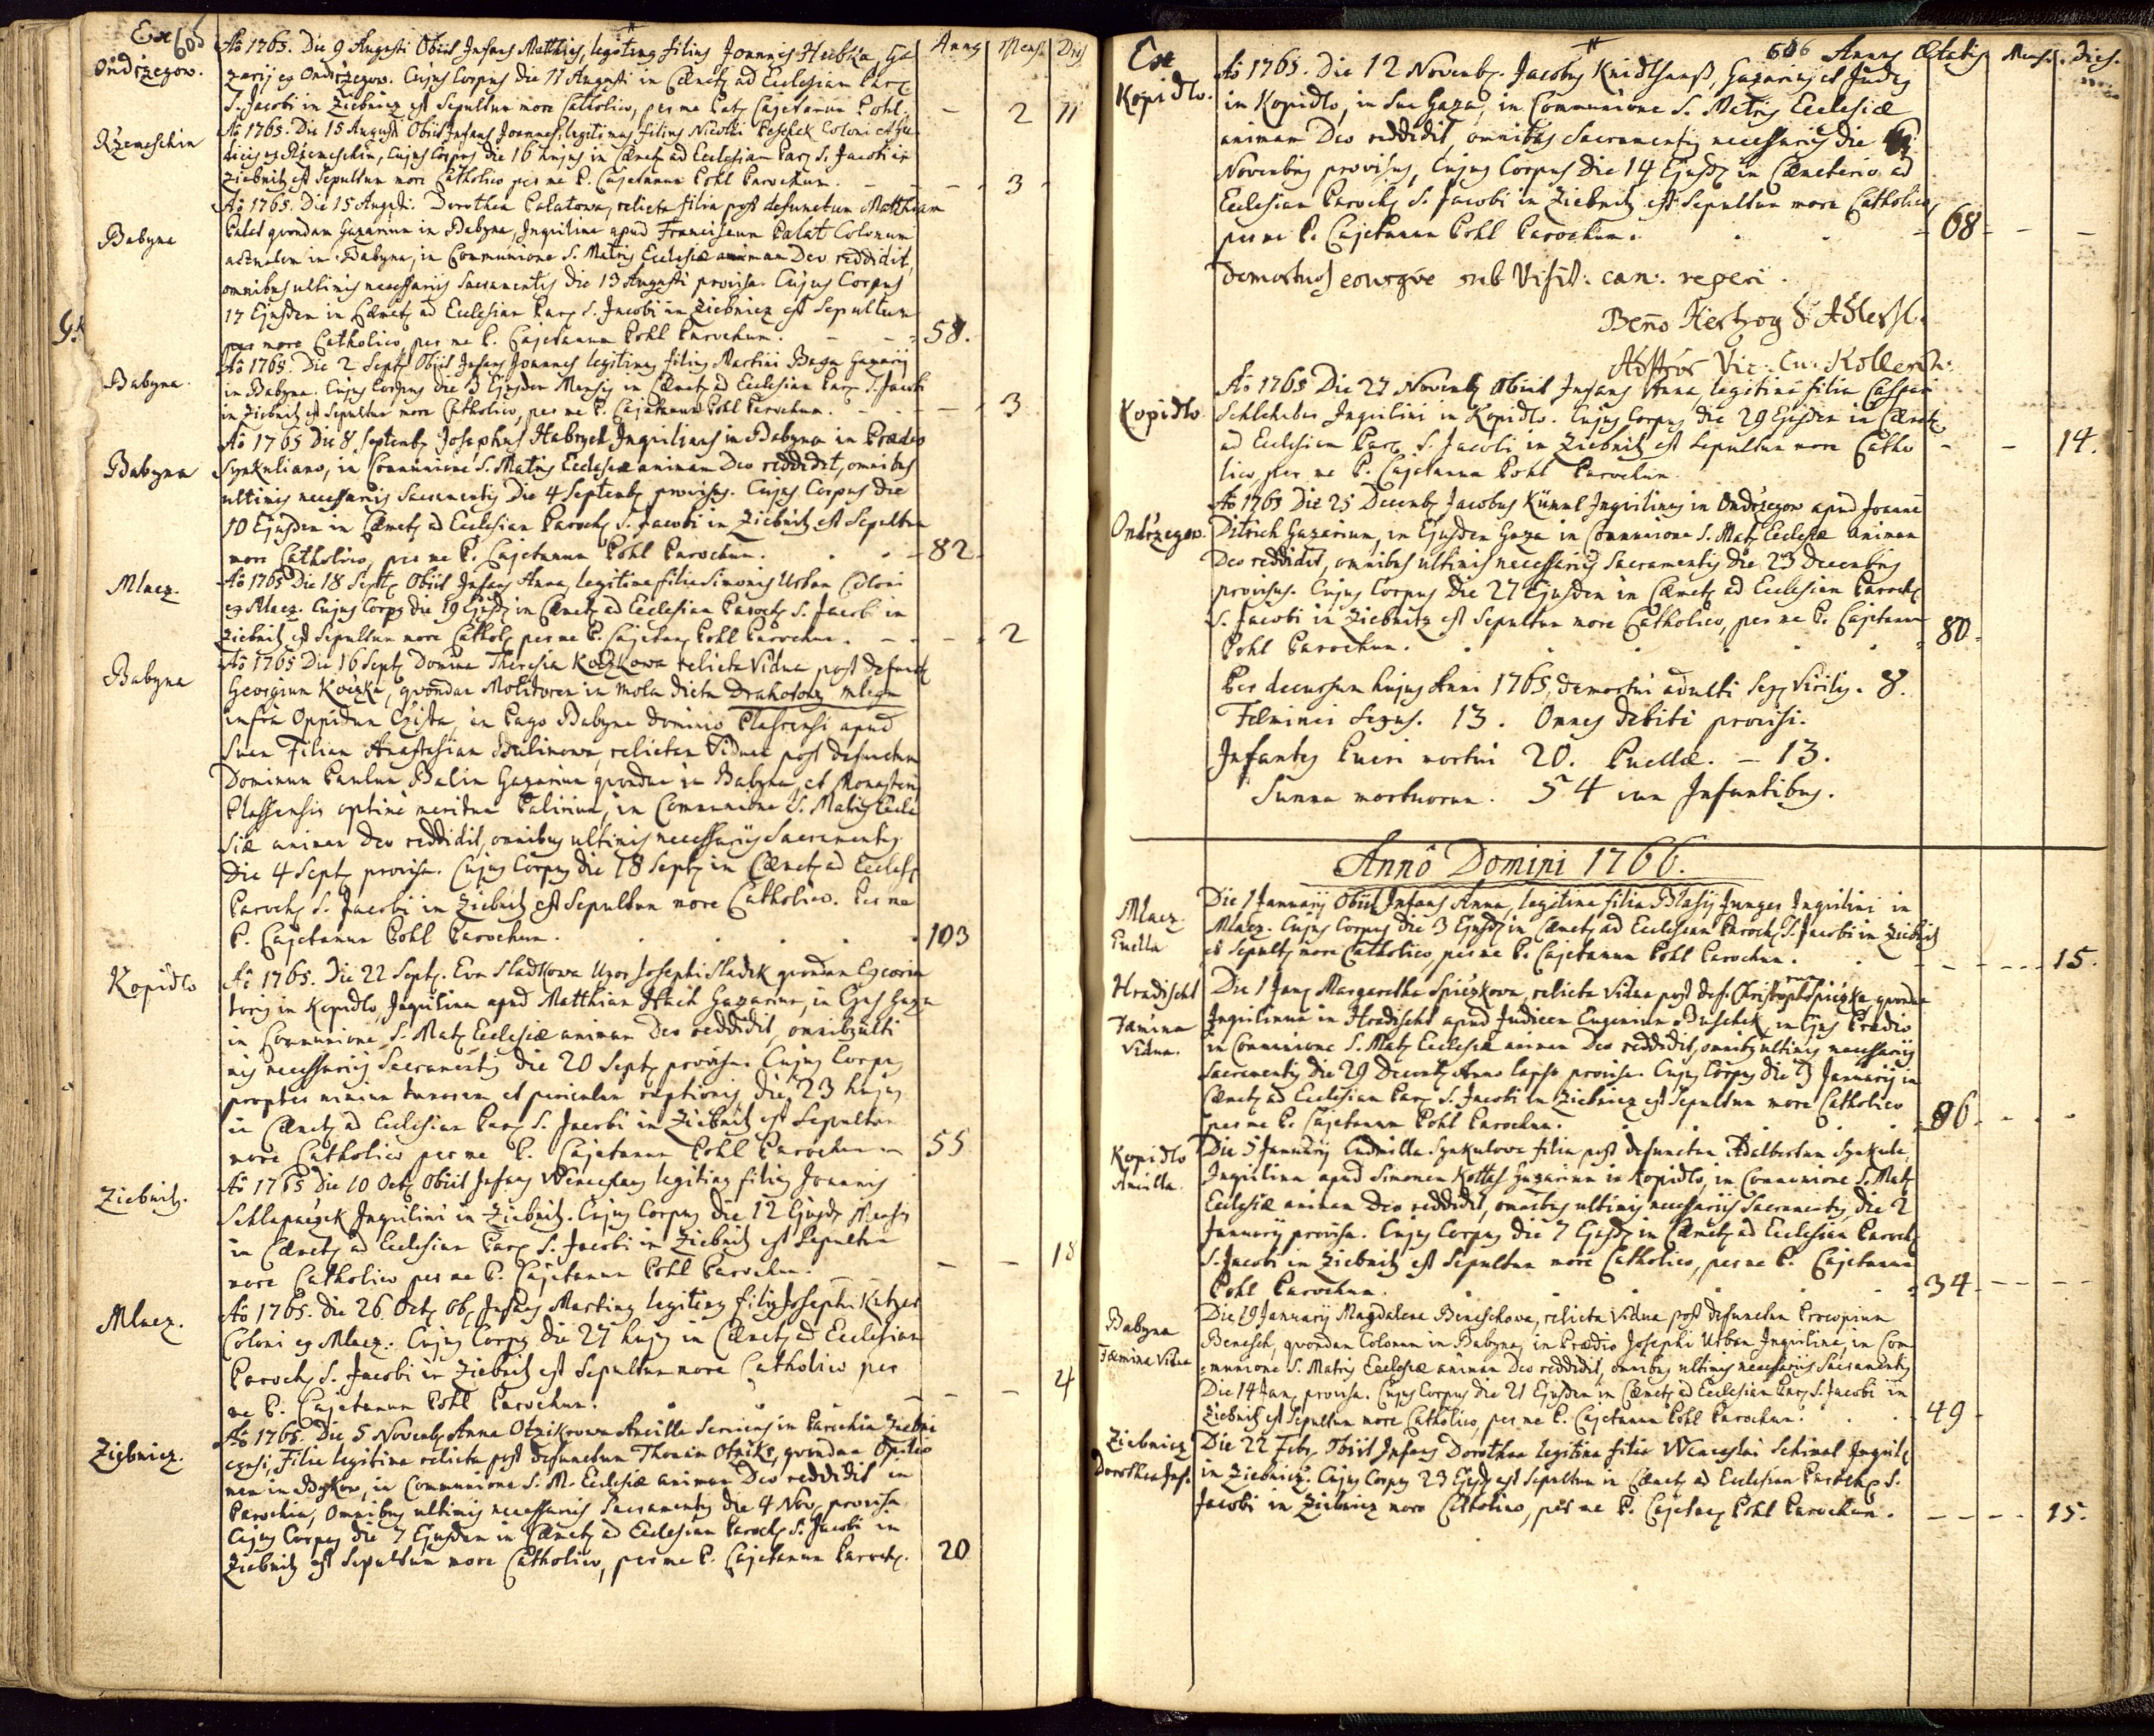 Ex 605 Anny Mens. Dies
Ondržegow.
Aõ 1765. Die 9 Augusti Obiit Infans Matthias, legitimus filius Joannis Hubka, Ga
zarij ex Ondržegow. Cujus Corpus die 11 Augusti in Cæmet. ad Ecclesiam Par.
S. Jacobi in Ziebnicz est Sepultum more Catholico, per me Pat. Cajetanum Pohl. — 2 11
Ržemeschin
Aõ 1765. Die 15 Augusti Obiit Infans Joannes, legitimus filius Nicolai Peschek Coloni et Ju
dicis ex Ržemeschin, Cujus Corpus die 16 hujus in Cæmet. ad Ecclesiam Par. S. Jacobi in
Ziebnitz est Sepultum more Catholico per me P. Cajetanum Pohl Parochum. — 3 -
Babyna
Aõ 1765. Die 15 Augusti. Dorothea Palatowa, relicta filia post defunctum Matthiam
Palat quondam Gazarium in Babyna, Inquilina apud Franciscum Palat Colonum
actualem in Babyna, in Communione S. Matris Ecclesiæ animam Deo reddidit,
omnibus ultimis necessariis Sacramentis die 13 Augusti provisa. Cujus Corpus
17 Ejusdem in Cæmet. ad Ecclesiam Par. S. Jacobi in Ziebnicz est Sepultum
per more Catholico, per me P. Cajetanum Pohl Parochum. 58.
Babyna.
Aõ 1765. Die 2 Sept. Obiit Infans Joannes legitimus filius Martini Baga Gazarij
in Babyna. Cujus Corpus die 3 Ejusdem Mensis in Cæmet. ad Ecclesiam Par. S. Jacobi
in Ziebnitz est Sepultum more Catholico, per me P. Cajetanum Pohl Parochum. — 3
Babyna
Aõ 1765 Die 8 Septemb. Josephus Habrych Inquilinus in Babyna in Prædio
Synkuliano, in Communione S. Matris Ecclesiæ animam Deo reddidit, omnibus
ultimis necessariis Sacramentis Die 4 Septemb. provisus. Cujus Corpus die
10 Ejusdem in Cæmet. ad Ecclesiam Paroch. S. Jacobi in Ziebnitz est Sepultum
more Catholico, per me P. Cajetanum Pohl Parochum. 82
Mlacz.
Aõ 1765 Die 18 Sept. Obiit Infans Anna, legitima filia Simonis Urban Coloni
ex Mlacz. Cujus Corpus die 19 Ejusd. in Cæmet. ad Ecclesiam Paroch. S. Jacobi in
Ziebnitz est Sepultum more Cathol. per me P. Cajetanum Pohl Parochum. — 2
Babyna
Aõ 1765 Die 16 Sept. Domina Theresia Koczkowa relicta Vidua post defunct.
Georgium Koczka, quondam Molitorem in mola dicta Drahotowy mlegn
infra Oppidum Czista, in Pago Babyna Dominio Plassensi apud
Suam Filiam Anastasiam Balinowa, relictam Viduam post defunctum
Dominum Paulum Balin Gazarium quondam in Babyna, et Monasterij
Plassensis optime meritum, in Communione S. Matris Eccle
siæ animam Deo reddidit, omnibus ultimis necessariis Sacramentis
Die 4 Sept. provisa. Cujus Corpus die 18 Sept. in Cæmet. ad Eccles.
Paroch. S. Jacobi in Ziebnitz est Sepultum more Catholico. Per me
P. Cajetanum Pohl Parochum. 103
Kopidlo
Aõ 1765. Die 22 Sept. Eva Sladkowa Uxor Josephi Sladek quondam Excoria
toris in Kopidlo, Inquilina apud Matthiam Hach Gazarium, in Ejus Gaza
in Communione S. Mat. Ecclesiæ animam Deo reddidit, omnibus ulti
mis necessariis Sacramentis die 20 Sept. provisa. Cujus Corpus
propter nimium tumorem et periculum ruptionis, die 23 hujus
in Cæmet. ad Ecclesiam Par. S. Jacobi in Ziebnitz est Sepultum
more Catholico per me P. Cajetanum Pohl Parochum 55
Ziebnitz.
Aõ 1765 Die 10 Octob. Obiit Infans Wenceslaus legitimus filius Joannis
Schlapaczek Inquilini in Ziebnitz. Cujus Corpus die 12 Ejusd. Mensis
in Cæmet. ad Ecclesiam Par. S. Jacobi in Ziebnitz est Sepultum
more Catholico per me P. Cajetanum Pohl Parochum. — — 18
Mlacz.
Aõ 1765. Die 26 Oct. Ob. Infans Martinus legitimus filius Josephi Kutzer
Coloni ex Mlacz. Cujus Corpus die 27 hujus in Cæmet. ad Ecclesiam
Paroch. S. Jacobi in Ziebnitz est Sepultum more Catholico per
me P. Cajetanum Pohl Parochum. — — 4
Ziebnicz.
Aõ 1765. Die 5 Novemb. Anna Otzikowa Ancilla Serviens in Parochia Ziebni
czensi, Filia legitima relicta post defunctum Thomam Otzika, quondam Opilio
nem in Bykow, in Communione S. M. Ecclesiæ animam Deo reddidit in
Parochia, Omnibus ultimis necessariis Sacramentis die 4 Nov. provisa
Cujus Corpus die 7 Ejusdem in Cæmet. ad Ecclesiam Paroch. S. Jacobi in
Ziebnitz est Sepultum more Catholico, per me P. Cajetanum Paroch. 20
Ex 606 Annus Ætatis Mens. Dies.
Kopidlo.
Aõ 1765. Die 12 Novemb. Jacobus Knidlhanß, Gazarius et Judex
in Kopidlo, in Sua Gaza, in Communione S. Matris Ecclesiæ
animam Deo reddidit, omnibus Sacramentis necessariis die
Novembris provisus, Cujus Corpus die 14 Ejusd. in Cæmeterio ad
Ecclesiam Paroch. S. Jacobi in Ziebnitz est Sepultum more Catholico
per me P. Cajetanum Pohl Parochum. 68
Demortuos eousque sub Visit: can: reperi.
Benno Hertzog
Vic: Cur:
Kopidlo
Aõ 1765 Die 27 Novemb. Obiit Infans Anna, legitima filia Caspari
Schleheber Inquilini in Kopidlo. Cujus Corpus die 29 Ejusdem in Cæmet.
ad Ecclesiam Par. S. Jacobi in Ziebnitz est Sepultum more Catho
lico, per me P. Cajetanum Pohl Parochum. — — 14.
Ondržegow.
Aõ 1765 Die 25 Decemb. Jacobus Kümml Inquilinus in Ondržegow apud Joannē
Ditrich Gazarium, in Ejusdem Gaza in Communione S. Mat. Ecclesiæ animam
Deo reddidit, omnibus ultimis necessariis Sacramentis die 23 Decembris
provisus. Cujus Corpus die 27 Ejusdem in Cæmet. ad Ecclesiam Paroch.
S. Jacobi in Ziebnitz est Sepultum more Catholico, per me P. Cajetanum
Pohl Parochum. 80
Per decursum hujus Anni 1765, demortui adulti Sex. Virilis. 8.
Fæminei Sexus. 13. Omnes debite provisi.
Infantes Pueri mortui 20. Puellæ. — 13.
Summa mortuorum. 54 cum Infantibus.
Annô Domini 1766.
Mlacz.
Puella
Die 1 Januarij Obiit Infans Anna, legitima filia Blasij Junger Inquilini in
Mlacz. Cujus Corpus die 3 Ejusd. in Cæmet. ad Ecclesiam Paroch. S. Jacobi in Ziebnitz
est Sepult. more Catholico, per me P. Cajetanum Pohl Parochum. 15.
Hradischt
Fæmina
Vidua.
Die 1 Jan. Margaretha Spiczkowa, relicta Vidua post def. Christophorum Spiczka quondam
Inquilinum in Hradischt apud Judicem Eugenium Buschek, in Ejus Prædio
in Communione S. Mat. Ecclesiæ animam Deo reddidit, omnibus ultimis necessariis
Sacramentis die 29 Decemb. Anno lapso provisa. Cujus Corpus die 3 Januarij in
Cæmet. ad Ecclesiam Par. S. Jacobi in Ziebnicz est Sepultum more Catholico
per me P. Cajetanum Pohl Parochum. 86
Kopidlo
Ancilla.
Die 5 Januarij Ludmilla Synkulowa filia post defunctum Adalbertum Synkule,
Inquilina apud Simonem Kottas Gazarium in Kopidlo, in Communione S. Mat.
Ecclesiæ animam Deo reddidit, omnibus ultimis necessariis Sacramentis, die 2
Januarij provisa. Cujus Corpus die 7 Ejusd. in Cæmet. ad Ecclesiam Paroch.
S. Jacobi in Ziebnitz est Sepultum more Catholico, per me P. Cajetanum
Pohl Parochum. 34
Babyna
Fæmina Vidua
Die 19 Januarij Magdalena Beneschowa, relicta Vidua post defunctum Procopium
Benesch, quondam Colonum in Babyna, in Prædio Josephi Urban Inquilina, in Com
munione S. Matris Ecclesiæ animam Deo reddidit, omnibus ultimis necessariis Sacramentis
Die 14 Jan. provisa. Cujus Corpus die 21 Ejusdem in Cæmet. ad Ecclesiam Par. S. Jacobi in
Ziebnitz est Sepultum more Catholico, per me P. Cajetanum Pohl Parochum. 49
Ziebnicz
Dorothea Inf.
Die 22 Febr. Obiit Infans Dorothea legitima filia Wenceslai Schimal Inquil.
in Ziebnicz. Cujus Corpus 23 Ejusd. est Sepultum in Cæmet. ad Ecclesiam Paroch. S.
Jacobi in Ziebnicz more Catholico, per me P. Cajetan. Pohl Parochum. 15.